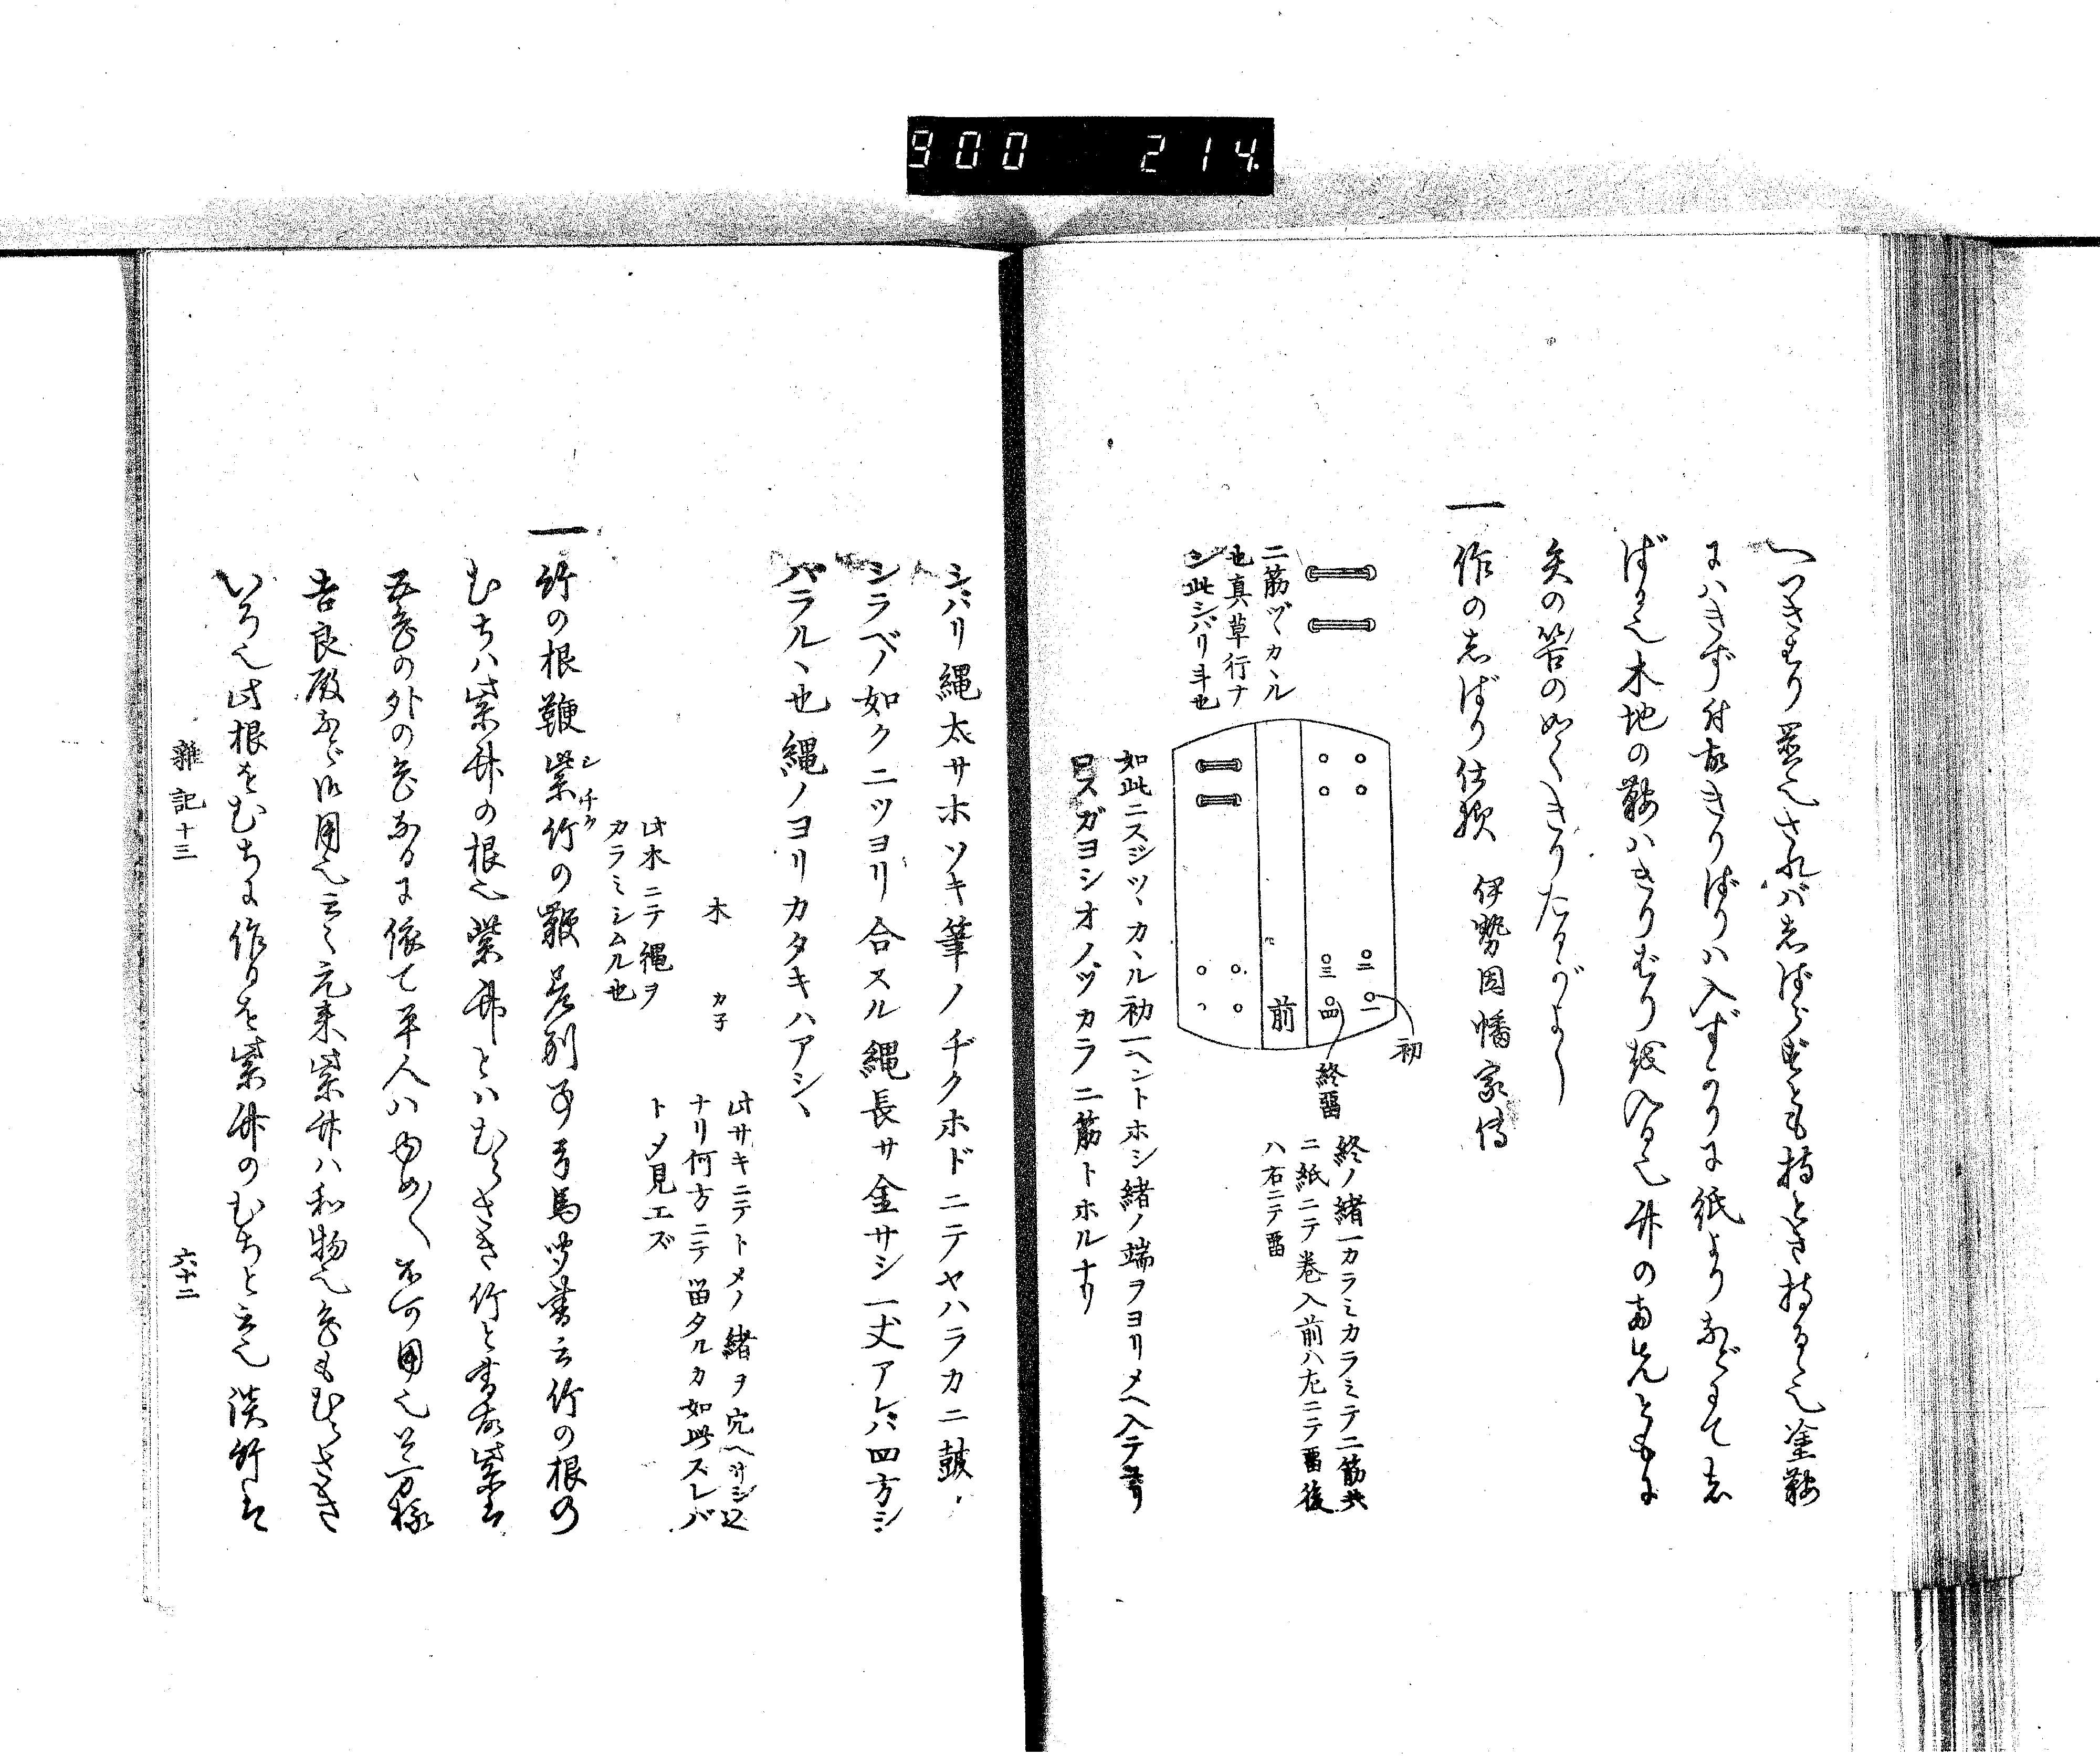 900 214
へつきたり置之されバしほらずとも持とき持る之塗鞍
にハきず付故きりばりハ入ずうりに紙よりなどにてし
ばる之木地の鞍ハきりむり
矢の筈の如くきりたるがよし
一作のしばり仕様 伊勢因幡家傳
二筋ヅヽカヽル
也真草行ナ
シ此シバリ斗也
前
一
二
三
四
初
終留
終ノ緒一カラミカラミテ二筋共
ニ紙ニテ巻入前ハ左ニテ留後
ハ右ニテ留
如此ニスジツヽカヽル初一ヘントホシ緒ノ端ヲヨリメヘ入テ
スガヨシオノヅカラ二筋トホルナリ
シバリ縄太サホソキ筆ノヂクホドニテヤハラカニ鼓ノ
シラベノ如ク二ツヨリ合スル縄長サ金サシ一丈アレバ四方シ
バラルヽ也縄ノヨリカタキハアシヽ
此サキニテトメノ緒ヲ穴ヘサシ込
ナリ何方ニテ留タルカ如此スレバ
トメ見エズ
木
カ子
此木ニテ縄ヲ
カラミシムル也
一竹の根鞭紫竹の鞭差別事弓馬聞書云竹の根の
シチク
むちハ紫竹の根之紫竹とハむらさき竹と書故紫は
五色の外の色なるに依て平人ハ
吉良殿など御用之云々元来紫竹ハ和物之色もむらさき
いろ之此根をむちに作るを紫竹のむちと云之淡竹は
雜記十三
六十二